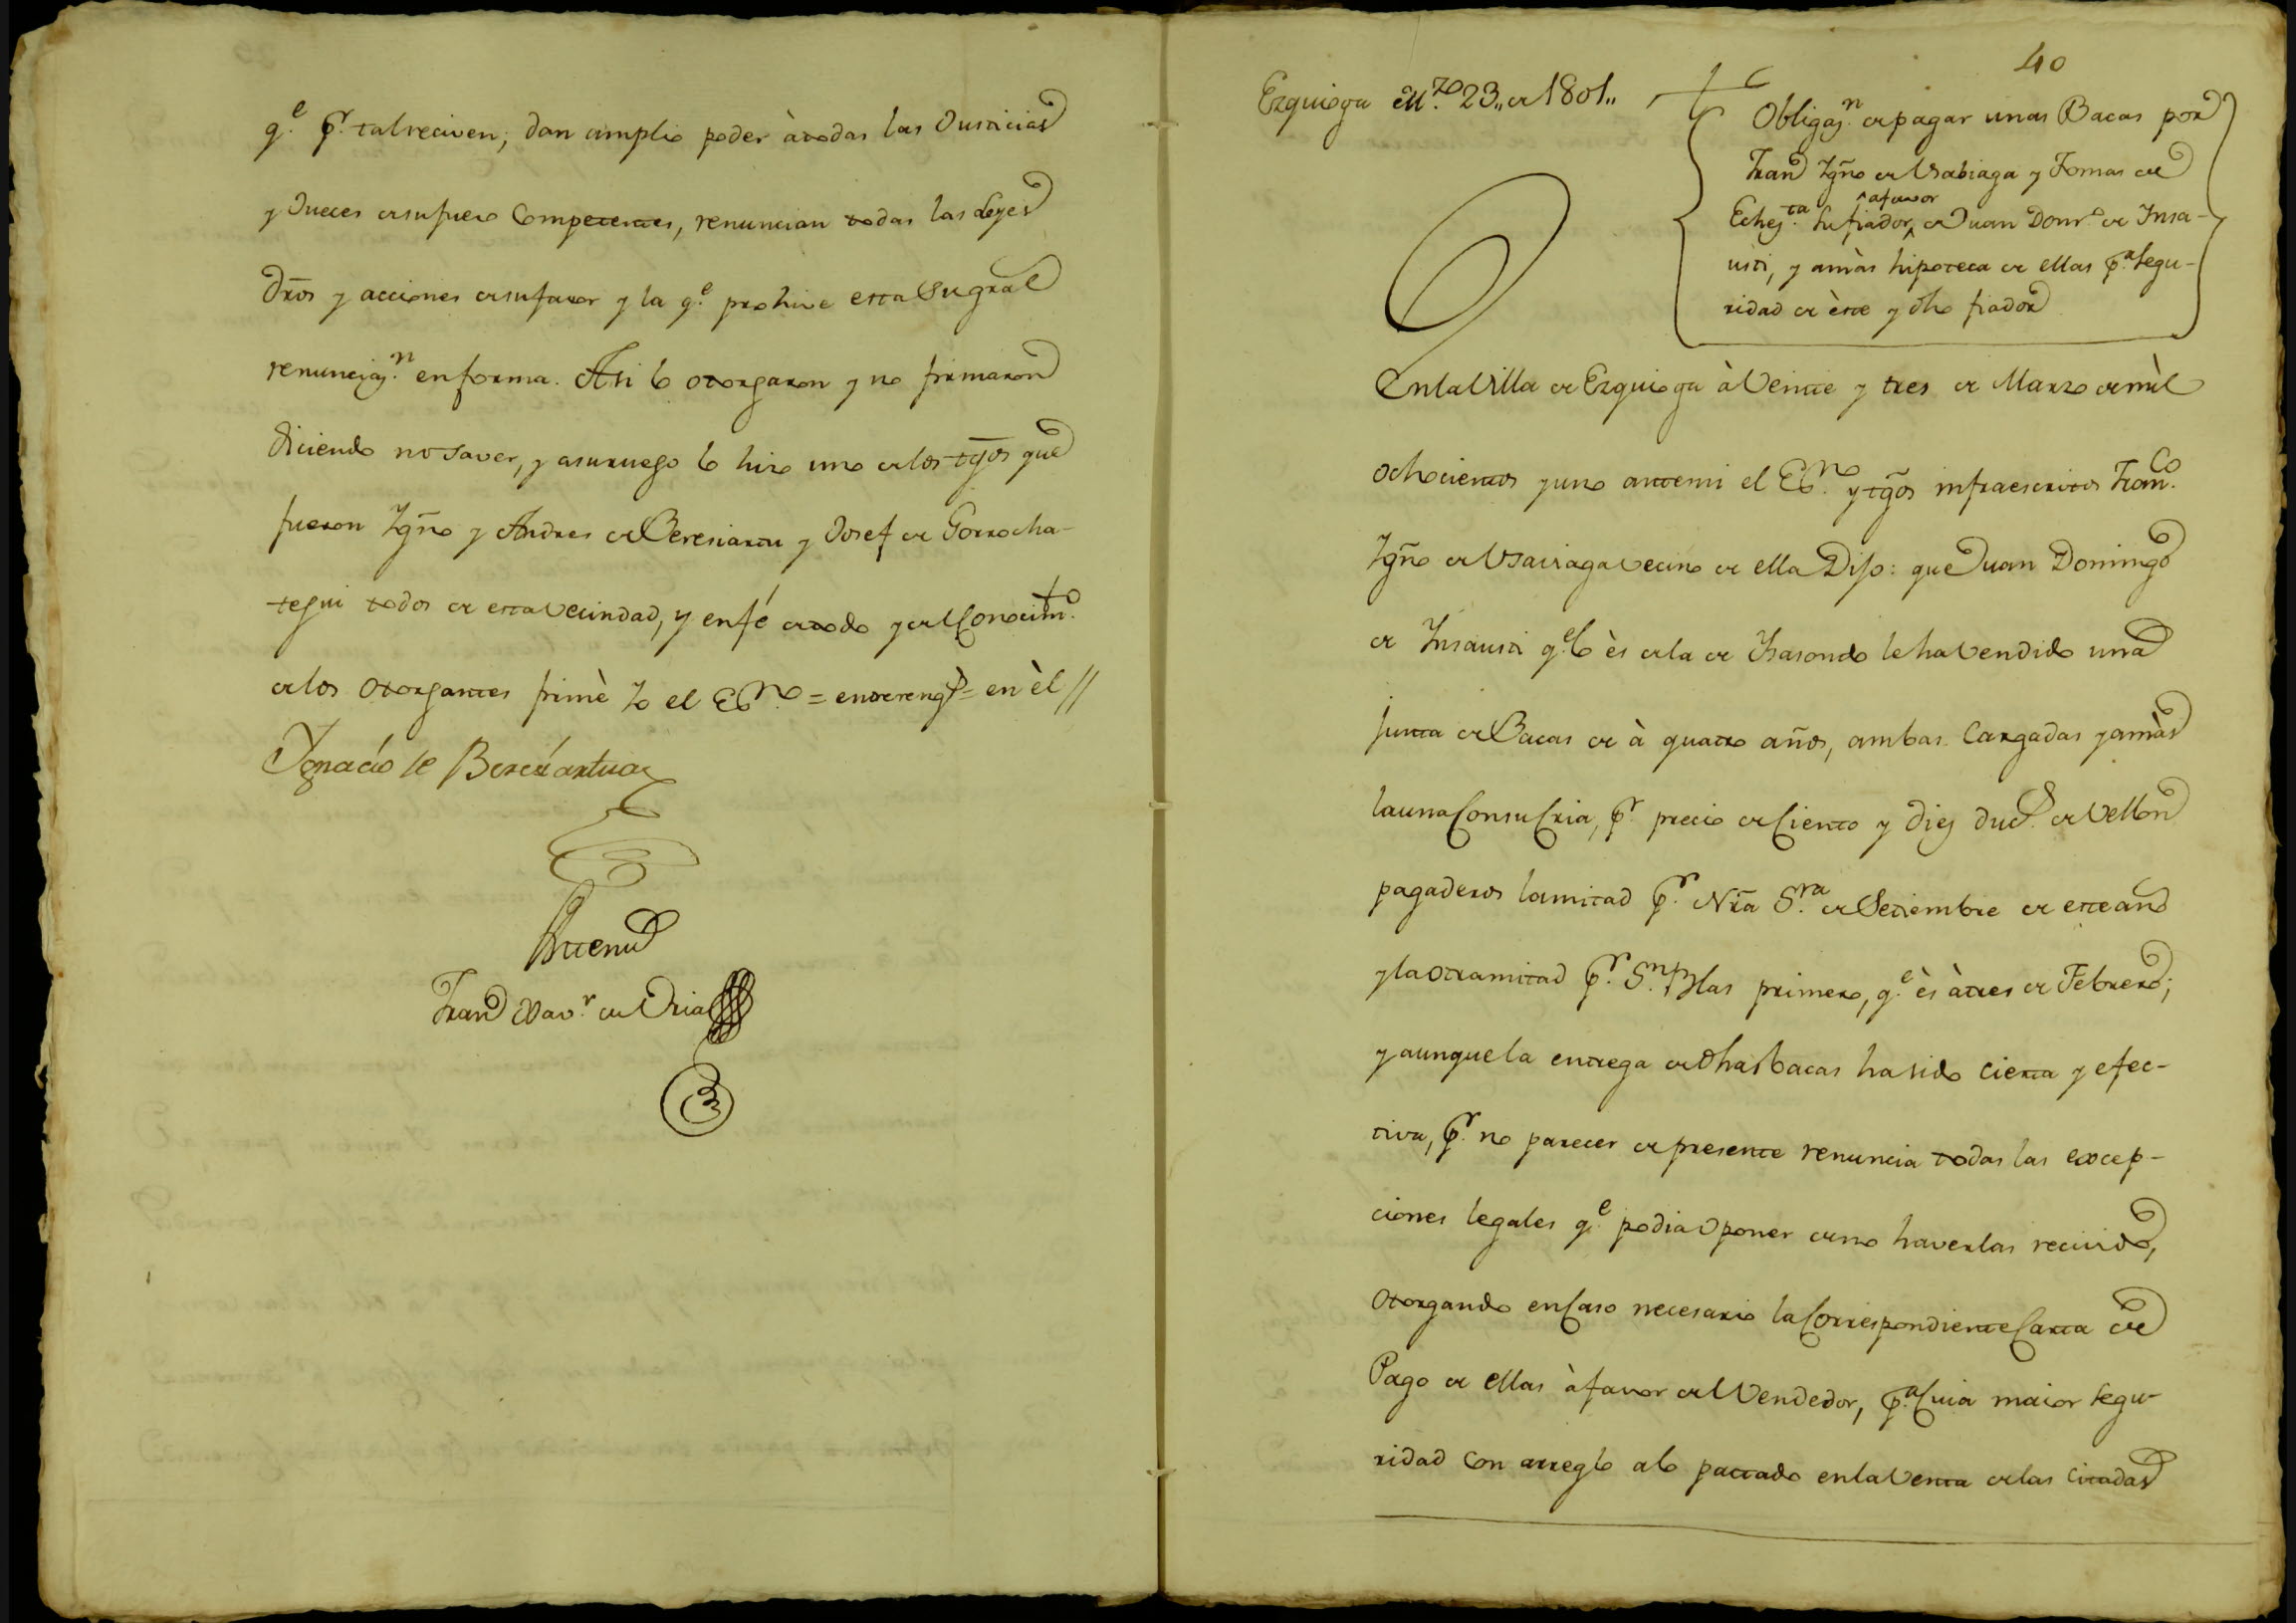 q.e pr. tal reciven; dan amplio poder à todas las Justicias
y Jueces de su fuero Competentes, renuncian todas las Leyes
dros y acciones de su favor y la q.e prohive esta su gral
renunciaz.n en forma. Asi lo otorgaron y no firmaron
diciendo no saver, y a su ruego lo hizo uno de los tgos que
fueron Ygño y Andres de Beresiartu y Josef de Gorrocha-
tegui todos de esta vecindad, y en fé de todo y del Conocim.to
de los otorgantes firmè Yo el Es.no = entrereng.s = en èl //
Ignacio de Bereciartua
Ante mi
Fran.co Xav.r de Oria
40
Ezquioga M.zo 23,, de 1801,,
Obligaz.n de pagar unas Bacas por
Fran.co Ygño de Usabiaga y Tomas de
Echez.ta su fiador, ^a favor de Juan Dom.o de Insa-
usti, y amàs hipoteca de ellas p.a segu-
ridad de èste y dho fiador
En la Villa de Ezquioga à Veinte y tres de Marzo de mìl
ochocientos y uno ante mi el Es.no y tgos infraescritos Fran.co
Ygño de Usaviaga vecino de ella Dijo: que Juan Domingo
de Insausti q.e lo ès de la de Ysasondo le ha vendido una
junta de Bacas de à quatro años, ambas Cargadas y amàs
la una Con su Cria, pr. precio de Ciento y diez duc.s de Vellon
pagaderos la mitad pr. Nra S.ra de Setiembre de este año
y la otra mitad pr. S.n Blas primero, q.e ès à tres de Febrero;
y aunque la entrega de dhas bacas ha sido cierta y efec-
tiva, pr. no parecer de presente renuncia todas las excep-
ciones legales q.e podia oponer de no haverlas recivido,
otorgando en Caso necesario la Correspondiente Carta de
Pago de ellas à favor del Vendedor, p.a Cuia maior segu-
ridad con arreglo a lo pactado en la Venta de las citadas